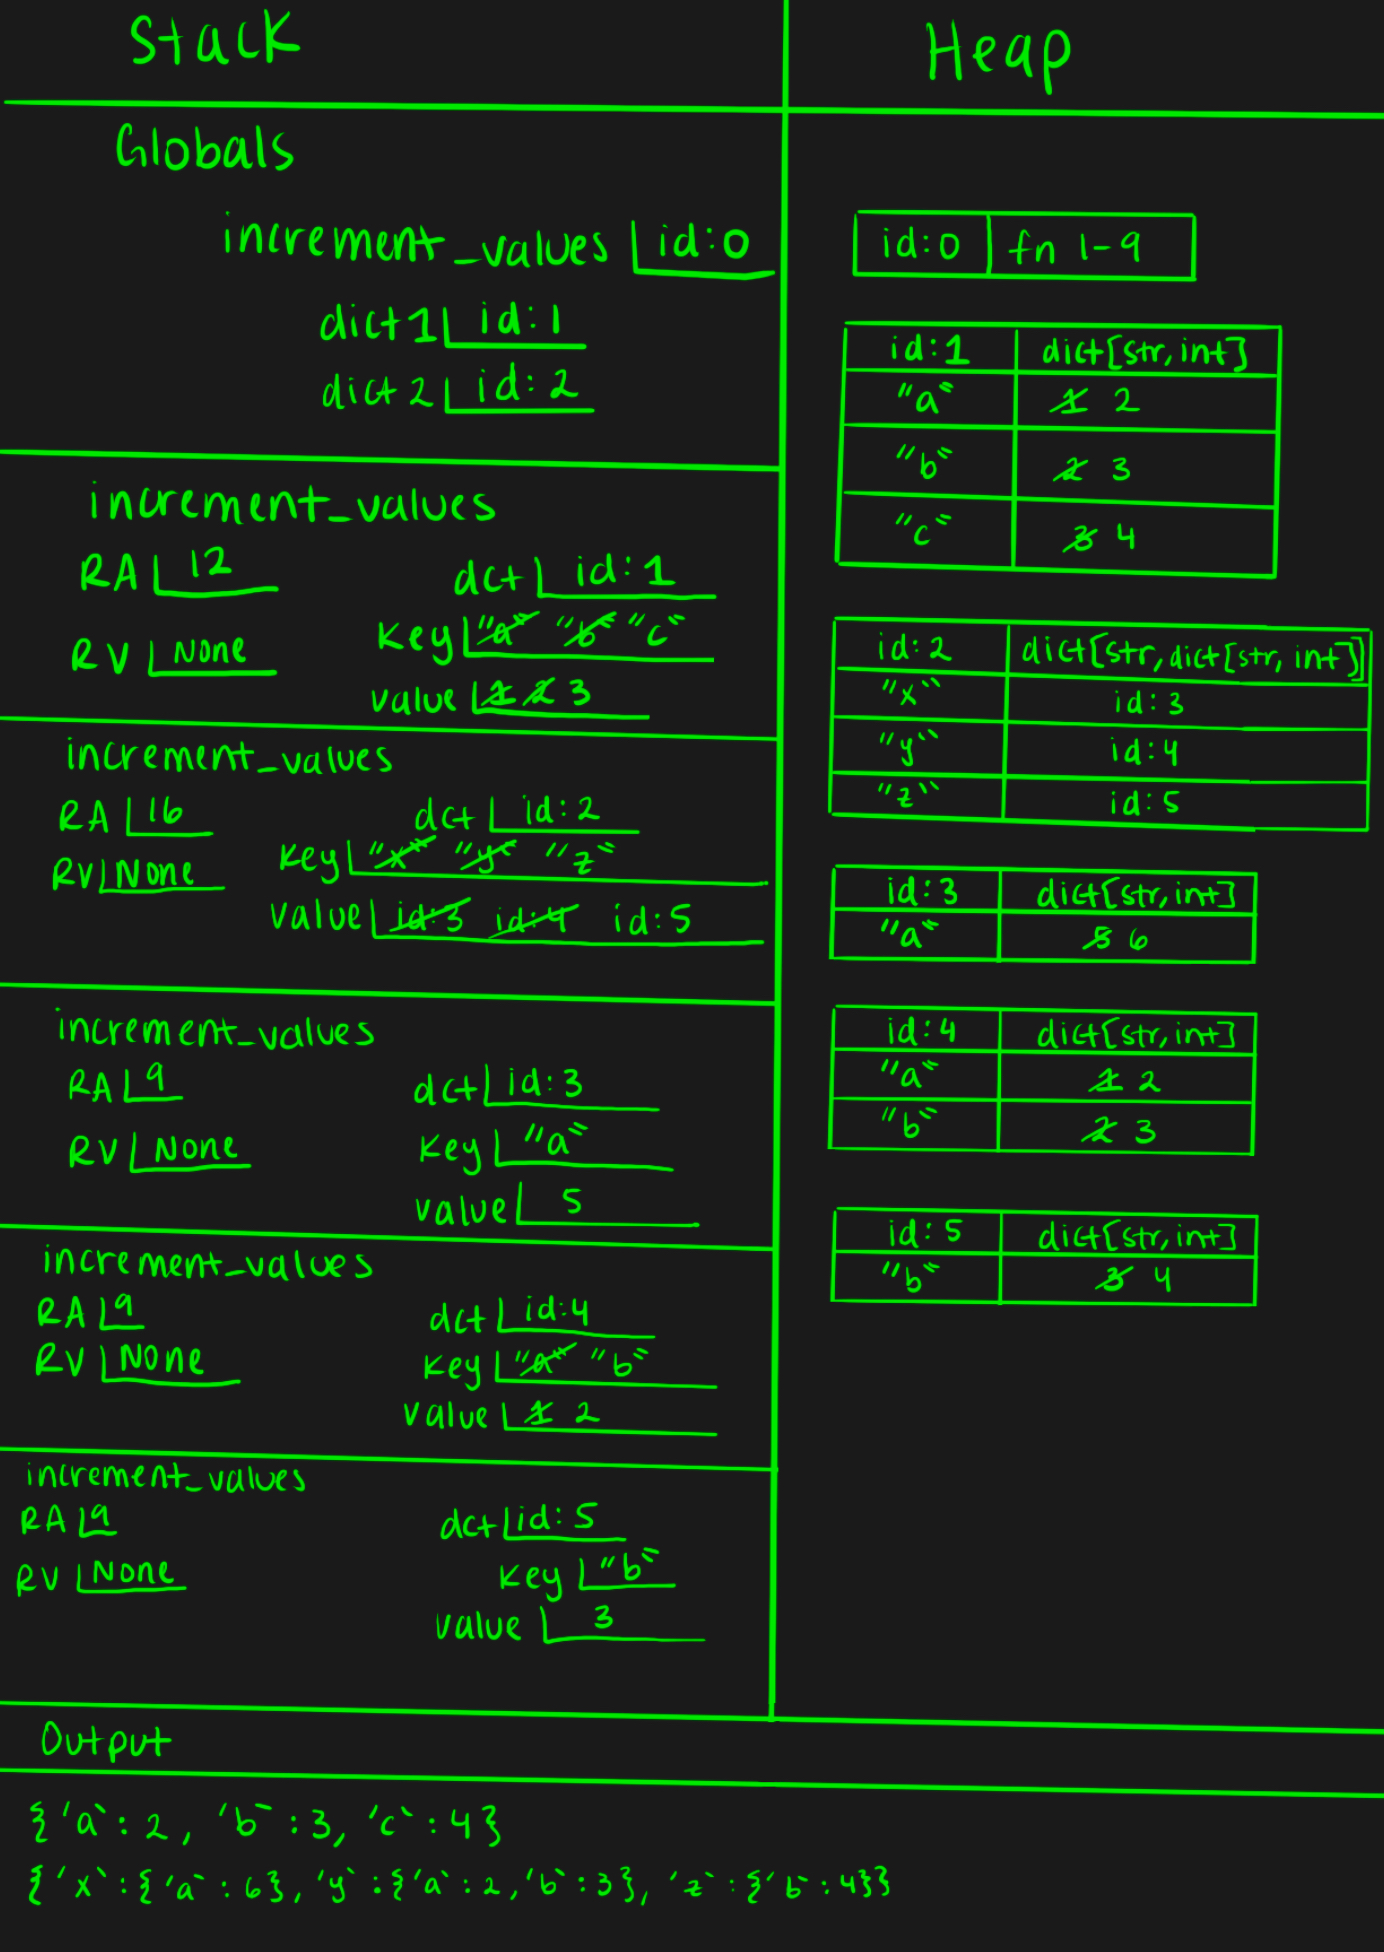 Stack
Heap
Globals
increment_values id:0
dict1 id:1
dict2 id:2
increment_values
RA 12
dct id:1
RV None
key "a" "b" "c"
value 1 2 3
increment_values
RA 16
dct id:2
RV None
key "x" "y" "z"
value id:3 id:4 id:5
increment_values
RA 9
dct id:3
RV None
key "a"
value 5
increment_values
RA 9
dct id:4
RV None
key "a" "b"
value 1 2
increment_values
RA 9
dct id:5
RV None
key "b"
value 3
id:0 fn 1-9
id:1 dict[str,int]
"a" 1 2
"b" 2 3
"c" 3 4
id:2 dict[str,dict[str, int]]
"x" id:3
"y" id:4
"z" id:5
id:3 dict[str,int]
"a" 5 6
id:4 dict[str,int]
"a" 1 2
"b" 2 3
id:5 dict[str,int]
"b" 3 4
Output
{'a': 2, 'b': 3, 'c': 4}
{'x': {'a': 6}, 'y': {'a': 2, 'b': 3}, 'z': {'b': 4}}